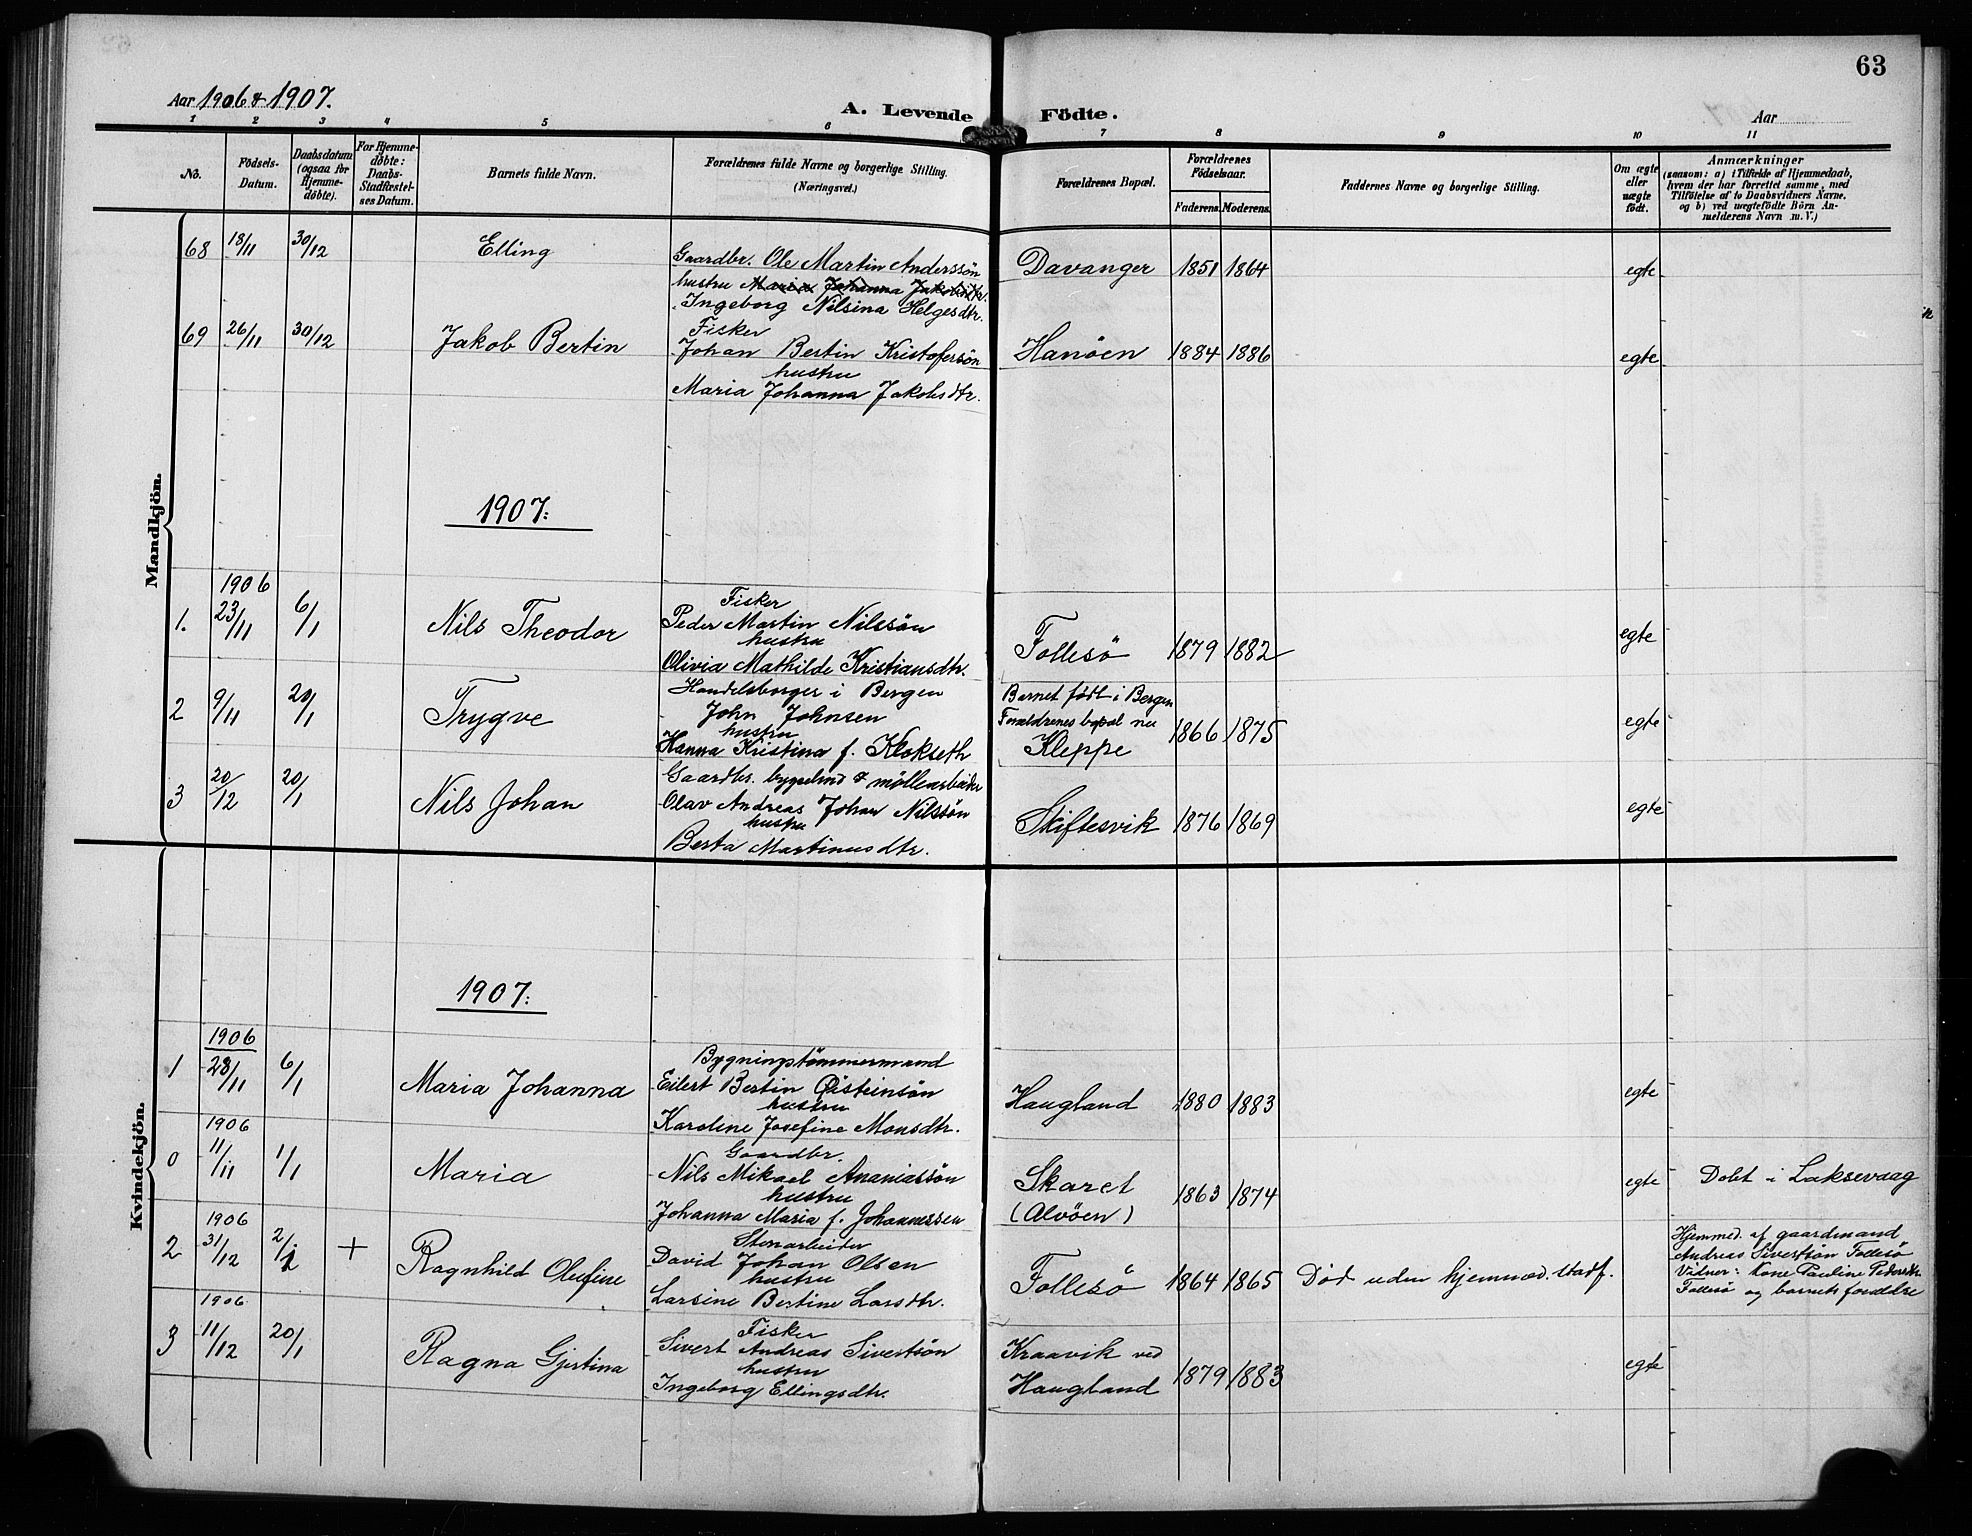 63
Aar 1906 & 1907.
A. Levende Födte.
Aar
1 2 3 4 5 6 7 8 9 10 11
No.
Födsels-Datum.
Daabsdatum (ogsaa for Hjemme-döbte).
For Hjemme-döbte: Daabs-Stadfæstel-ses Datum.
Barnets fulde Navn.
Forældrenes fulde Navne og borgerlige Stilling. (Næringsvei.)
Forældrenes Bopæl.
Forældrenes Födselsaar.
Faderens. Moderens.
Faddernes Navne og borgerlige Stilling.
Om ægte eller uægte födt.
Anmærkninger
(saasom: a) i Tilfælde af Hjemmedaab,
hvem der har forrettet samme, med
Tilföielse af to Daabsvidners Navne.
og b) ved uægtefödte Börn An-
melderens Navn m. V.)
Mandkjön.
68 18/11 30/12 Elling Gaardbr. Ole Martin Anderssön Davanger 1851 1864 egte
hustru Maria Johanna Jakobsdtr.
Ingeborg Nilsina Helgesdtr.
69 26/11 30/12 Jakob Bertin Fisker
Johan Bertin Kristoferssön Hanöen 1884 1886 egte
hustru
Maria Johanna Jakobsdtr.
1907:
1906
1. 23/11 6/1 Nils Theodor Fisker
Peder Martin Nilssön
hustru Follesö 1879 1882 egte
Olivia Mathilde Kristiansdtr.
2 9/11 20/1 Trygve Handelsborger i Bergen Barnet født i Bergen
John Johnsen Forældrenes bopæl nu
hustru Kleppe 1866 1875 egte
Hanna Kristina f. Klokseth
3 20/12 20/1 Nils Johan Gaardbr. bygselmd & möllearbeider
Olav Andreas Johan Nilssön Skiftesvik 1876 1869 egte
hustru
Berta Martinusdtr.
Kvindekjön.
1907:
1906
1 28/11 6/1 Maria Johanna Bygningstömmermand
Eilert Bertin Öisteinsön Haugland 1880 1883 egte
hustru
Karoline Josefine Monsdtr.
1906
0 11/11 1/1 Maria Gaardbr.
Nils Mikael Ananiassön Skaret 1863 1874 egte Dobt i Laksevaag
hustru (Alvöen)
Johanna Maria f. Johannessen
1906
2 31/12 2/1 + Ragnhild Olufine Stenarbeider
David Johan Olsen
hustru Follesö 1864 1865 Död uden hjemmed. stadf.
Larsine Bertine Larsdtr.
Hjemmed. af gaardmand
Andreas Sivertsön Follesö
Vidner: Kone Pauline Pedersdtr.
Follesö og barnets forældre
1906
3 11/12 20/1 Ragna Gjertina Fisker
Sivert Andreas Sivertsön Kraavik ved
hustru Haugland 1879 1883 egte
Ingeborg Ellingsdtr.